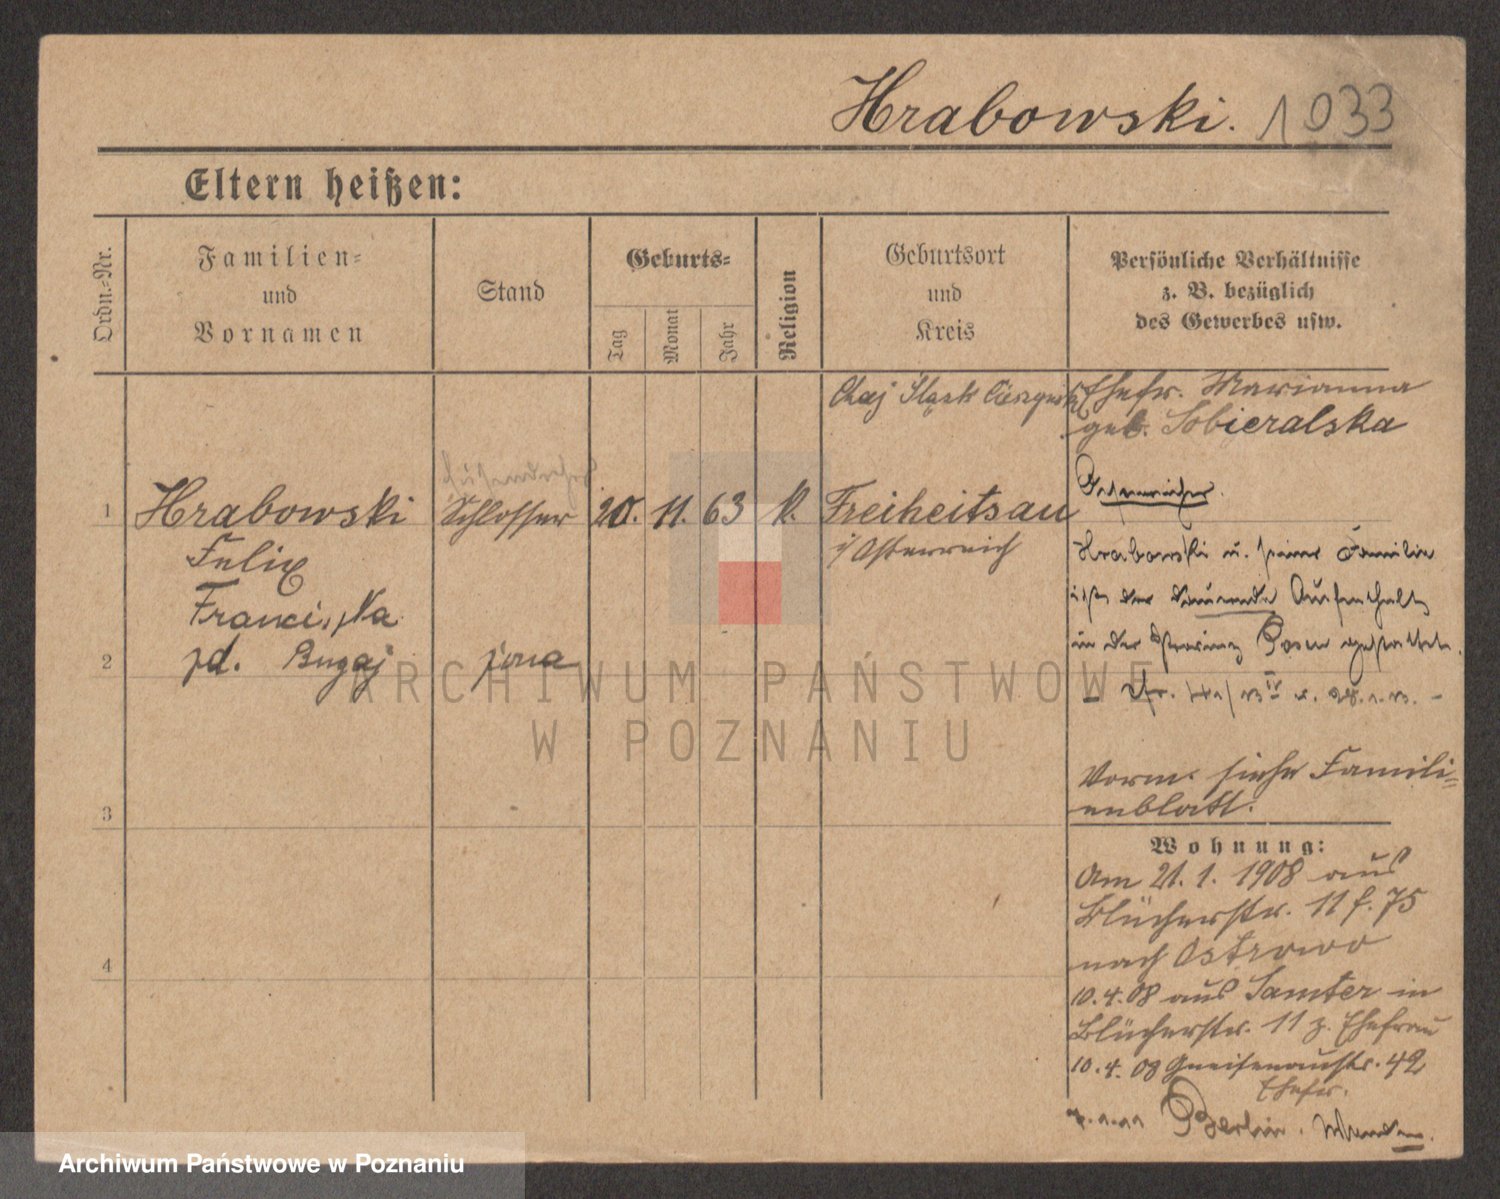 Hrabowski. 1033
Eltern heißen:
Ordn.-Nr.
Familien-
und
Vornamen
Stand
Geburts-
Tag
Monat
Jahr
Religion
Geburtsort
und
Kreis
Persönliche Verhältnisse
z. B. bezüglich
des Gewerbes usw.
Śląsk
Ehefr. Marianna
geb. Sobieralska
1 Hrabowski Schlosser 20. 11. 63 k. Freiheitsau
i/ Österreich
Felix
Hrabowski u. seine Familie
ist der dauernde Aufenthalt
Franciska
2 Bugaj
in der Provinz Posen gestattet.
ARCHIWUM PAŃSTWOWE
W POZNANIU
Vorm. siehe Famili-
enblatt.
3
Wohnung:
Am 21. 1. 1908 aus
Blücherstr. 11 f. 75
nach Ostrowo
4
10. 4. 08 aus Samter in
Blücherstr. 11 z. Ehefrau
10. 4. 08 Gneisenaustr. 42
Ehefr.
Berlin.
Archiwum Państwowe w Poznaniu